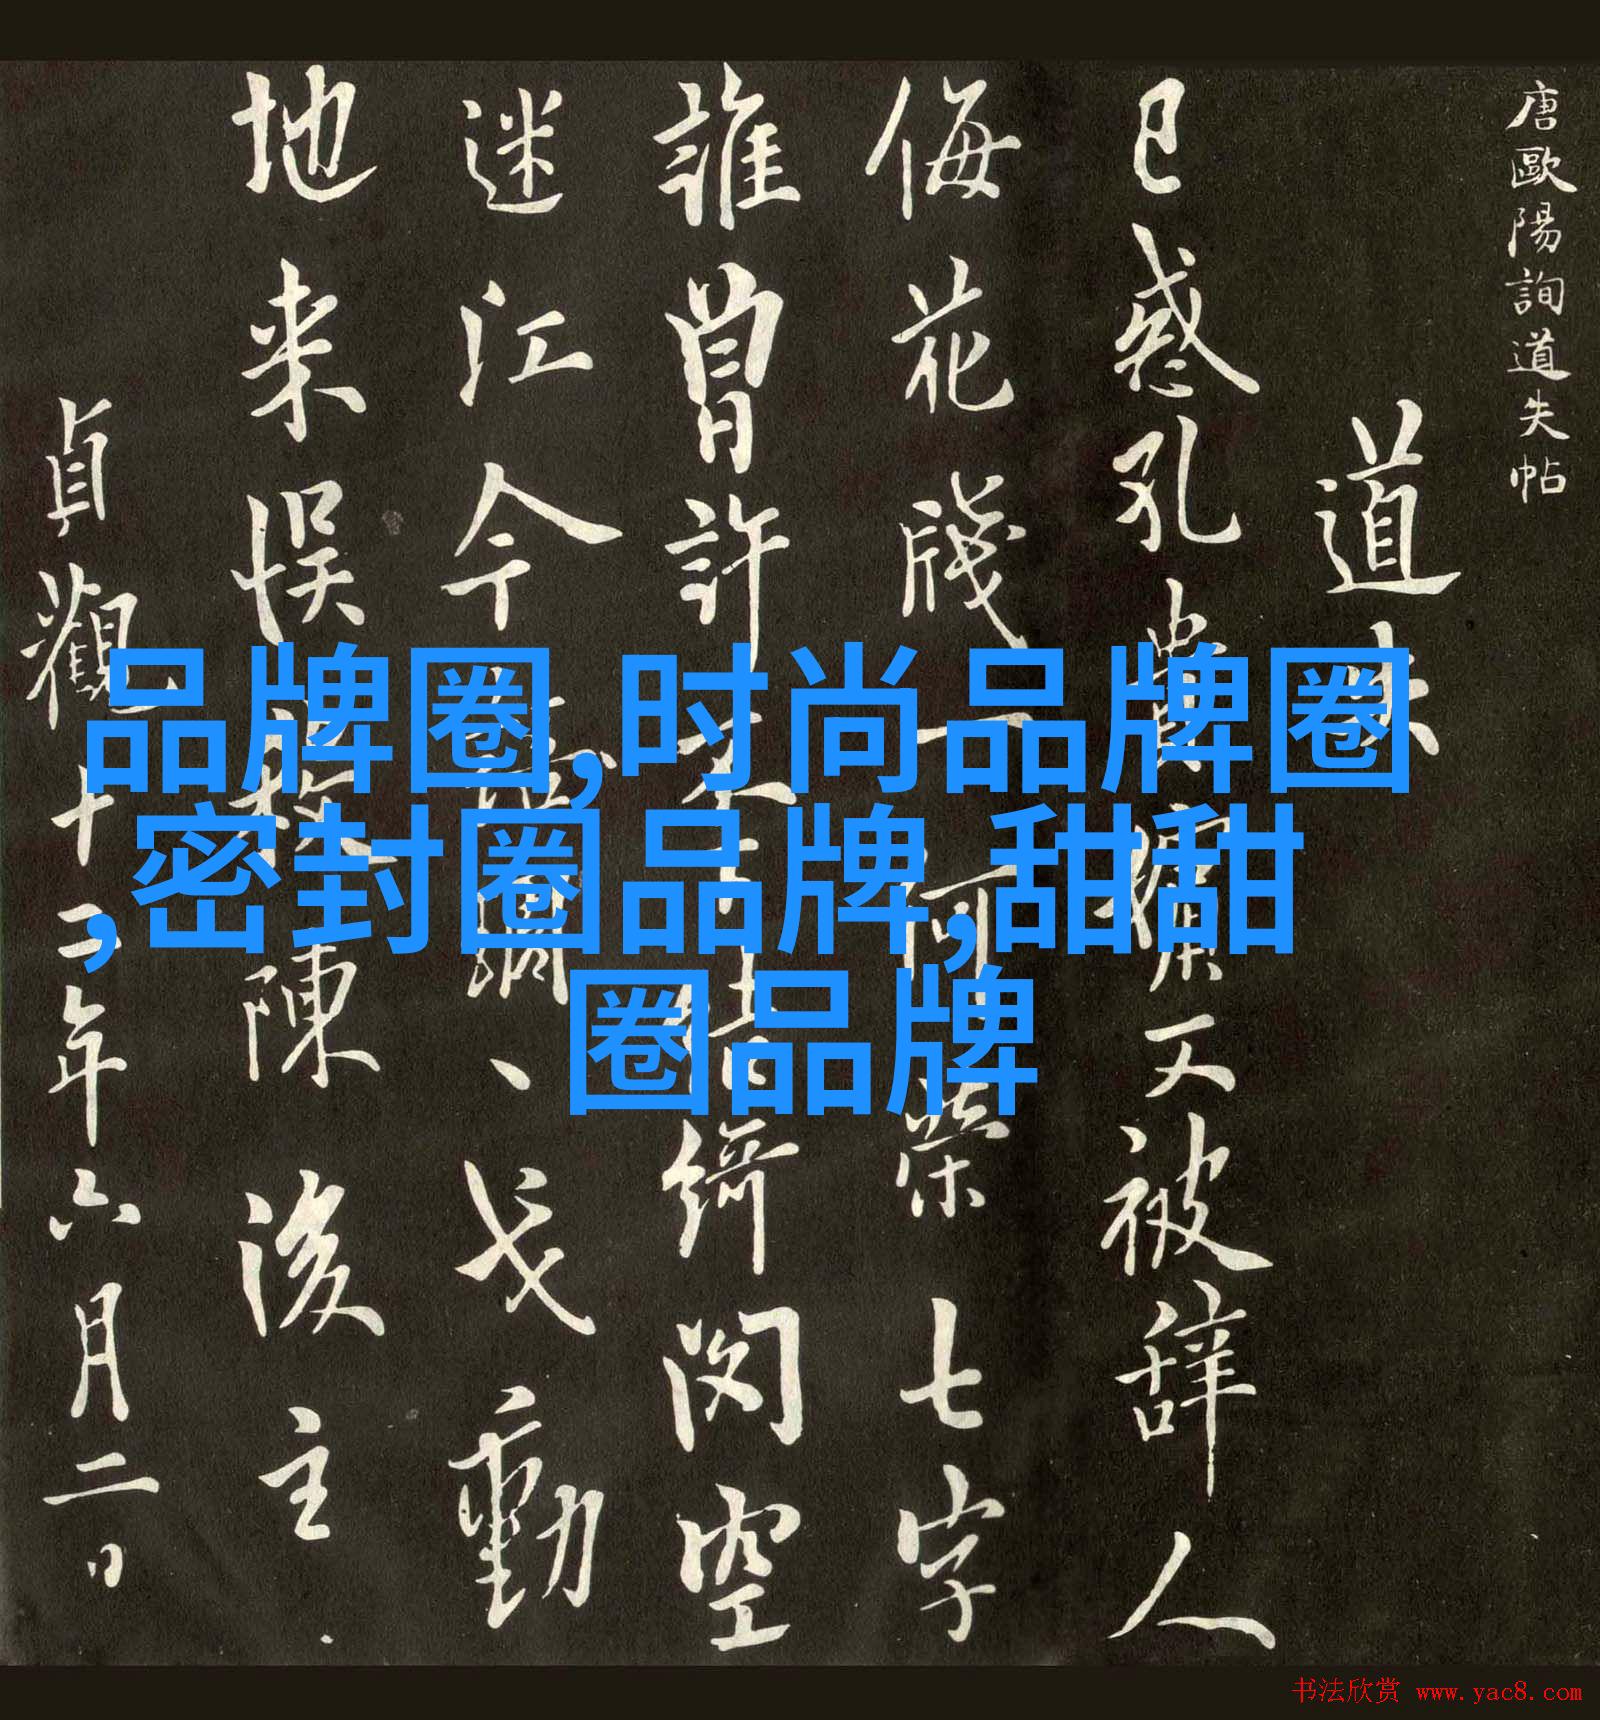 唐歐陽詢道失帖
道失
已惑孔貴嬪又被辭人
侮花牋一何榮七字
誰曾許
綺閣空
迷江今
戈動
地来悮
陳後主
貞觀十二年六月二日
品牌圈,时尚品牌圈
,密封圈品牌,甜甜
圈品牌
书法欣赏 www.yac8.com